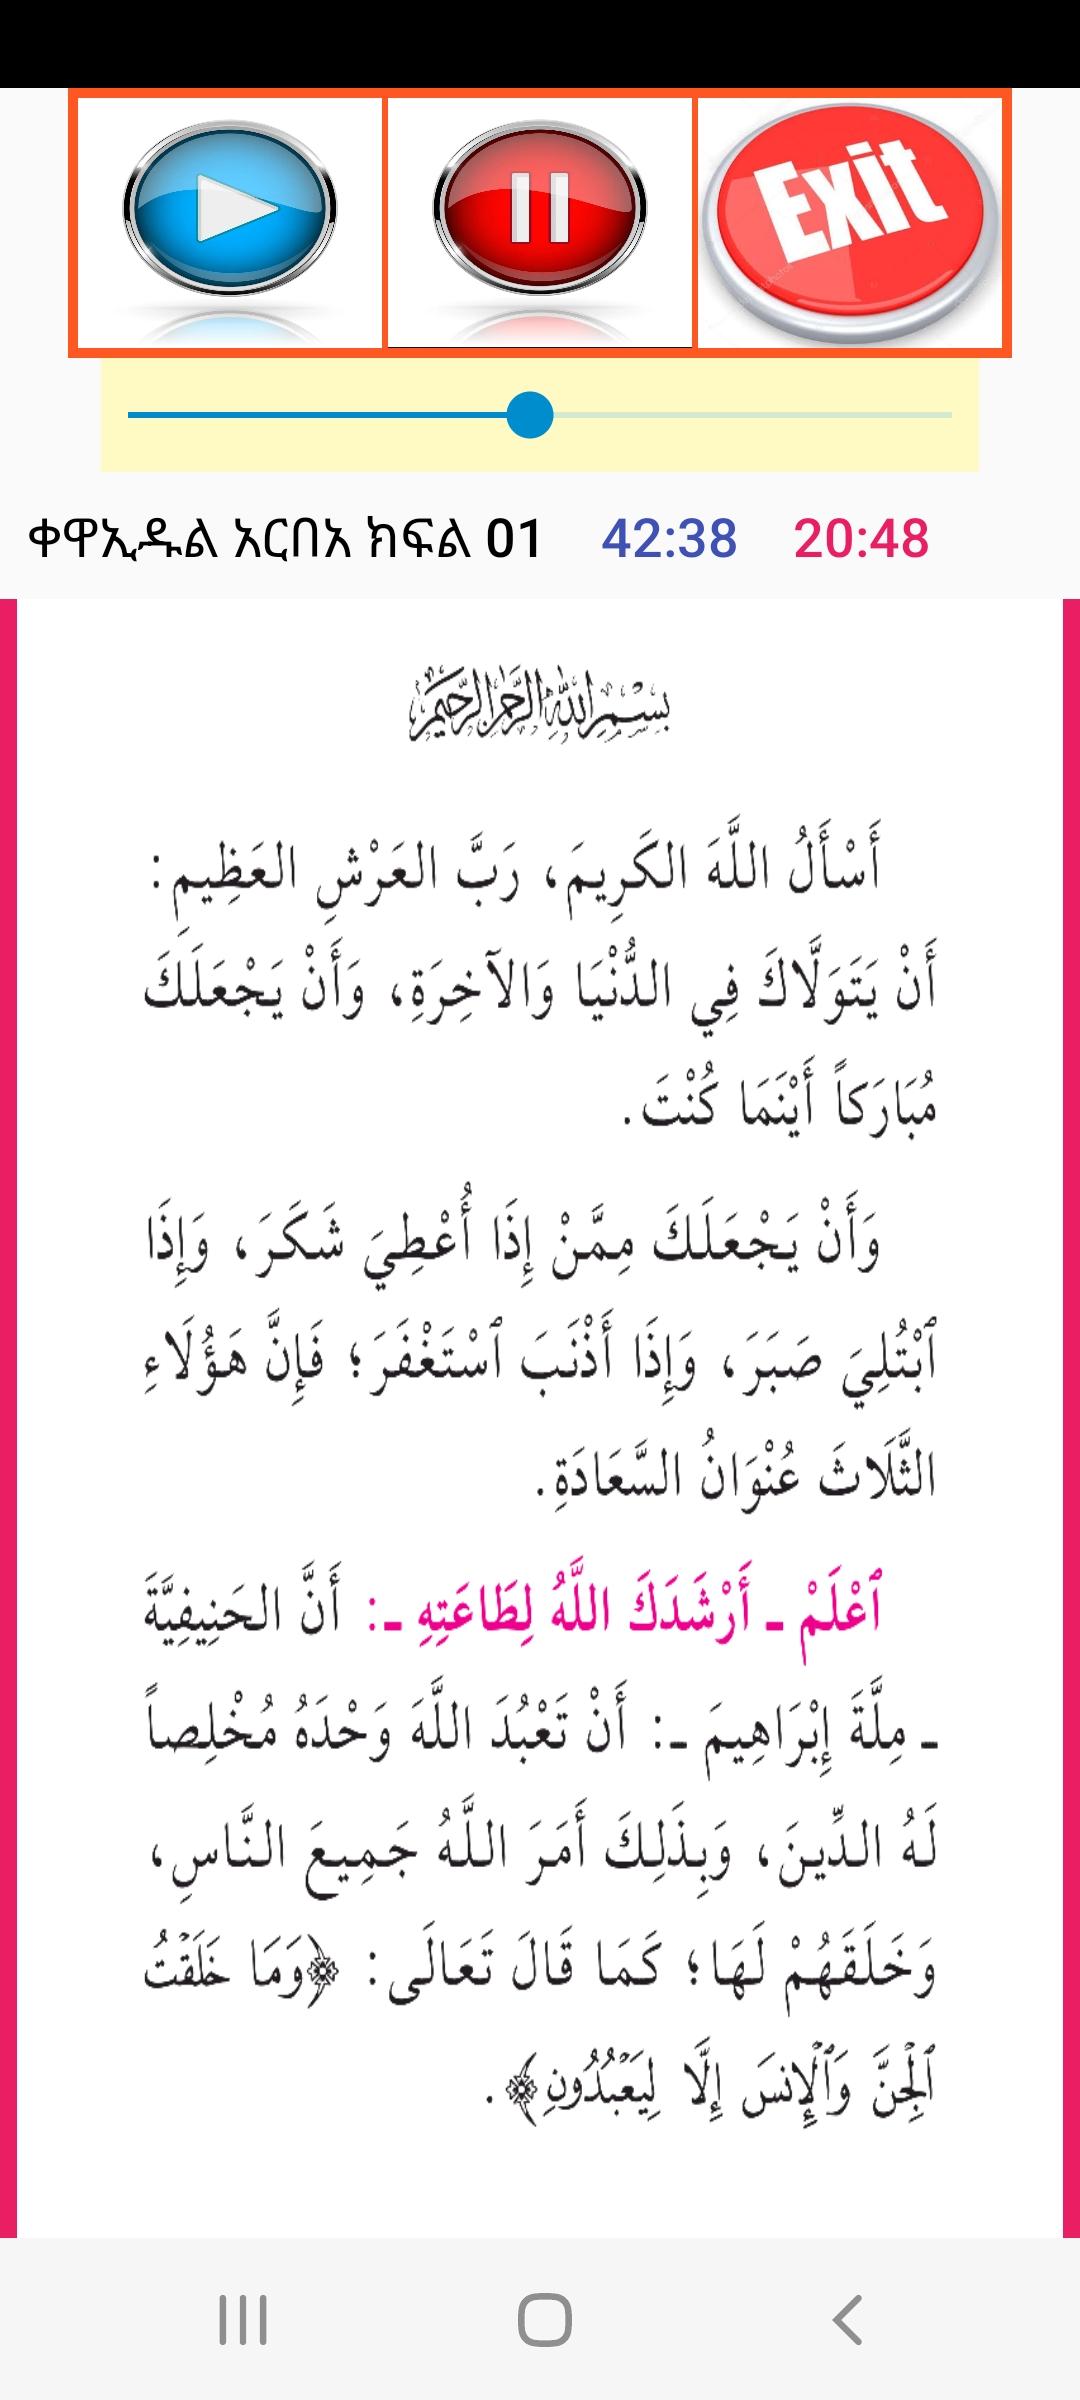 Exit
ቀዋኢዱል አርበአ ክፍል 01 42:38 20:48
بِسْمِ اللَّهِ الرَّحْمَٰنِ الرَّحِيمِ
أَسْأَلُ اللَّهَ الكَرِيمَ، رَبَّ العَرْشِ العَظِيمِ:
أَنْ يَتَوَلَّاكَ فِي الدُّنْيَا وَالآخِرَةِ، وَأَنْ يَجْعَلَكَ
مُبَارَكاً أَيْنَمَا كُنْتَ.
وَأَنْ يَجْعَلَكَ مِمَّنْ إِذَا أُعْطِيَ شَكَرَ، وَإِذَا
ٱبْتُلِيَ صَبَرَ، وَإِذَا أَذْنَبَ ٱسْتَغْفَرَ؛ فَإِنَّ هَؤُلَاءِ
الثَّلَاثَ عُنْوَانُ السَّعَادَةِ.
ٱعْلَمْ ـ أَرْشَدَكَ اللَّهُ لِطَاعَتِهِ ـ: أَنَّ الحَنِيفِيَّةَ
ـ مِلَّةَ إِبْرَاهِيمَ ـ: أَنْ تَعْبُدَ اللَّهَ وَحْدَهُ مُخْلِصاً
لَهُ الدِّينَ، وَبِذَلِكَ أَمَرَ اللَّهُ جَمِيعَ النَّاسِ،
وَخَلَقَهُمْ لَهَا؛ كَمَا قَالَ تَعَالَى: ﴿وَمَا خَلَقْتُ
ٱلْجِنَّ وَٱلْإِنسَ إِلَّا لِيَعْبُدُونِ﴾.